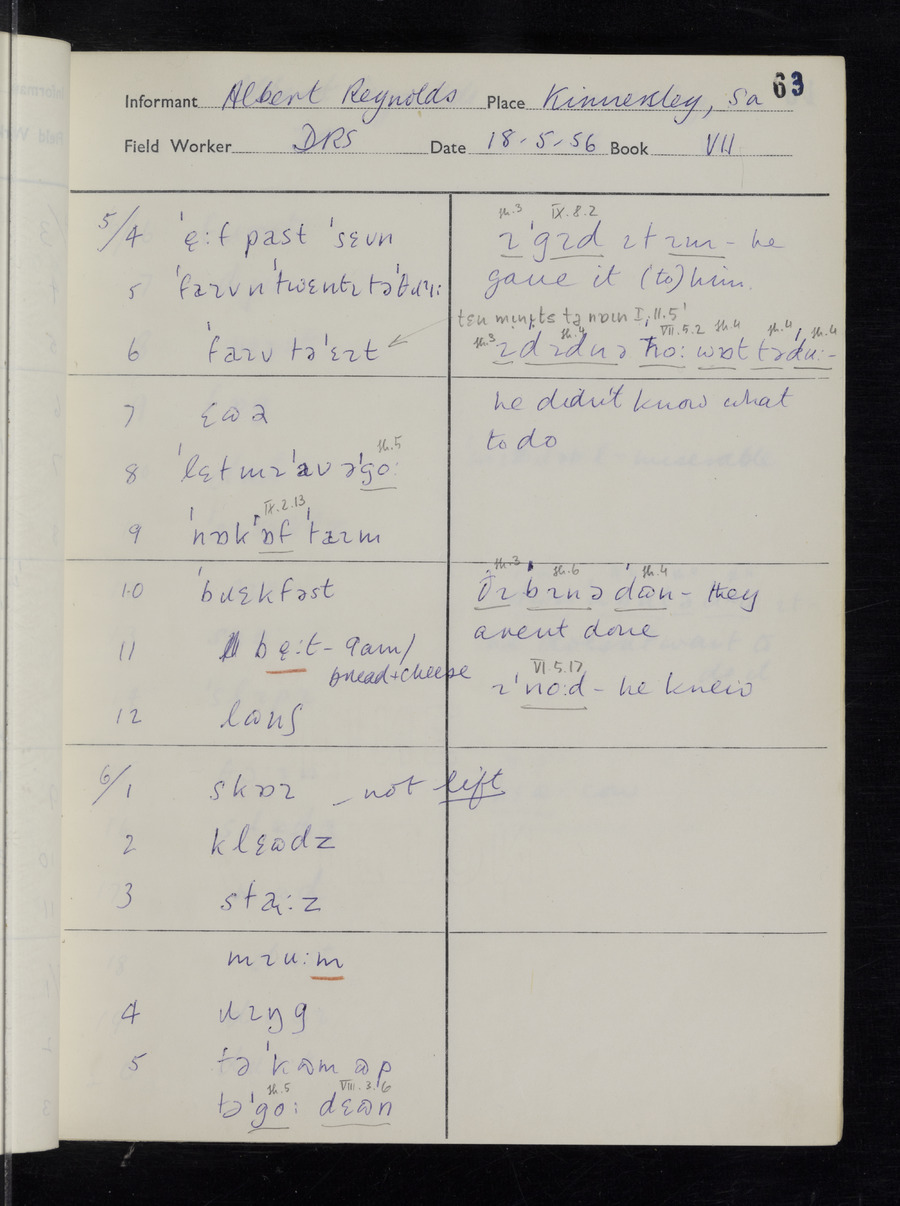 63
Informant Albert Reynolds Place Kinnersley, Sa
Field Worker DRS Date 18-5-56 Book VII
5/4 ˈę:f past ˈsɛvn
5 ˈfaɪv n ˈtwɛntɪ tə
6 ˈfaɪv təˈɛɪt
7 ɛɷə
8 ˈlɛt mɪ ˈav əˈgo:
sh.5
9 ˈnɒk ˈɒf ˈtaɪm
IX.2.13
10 ˈbɹɛkfəst
11 bę:t - 9am/
bread + cheese
12 lɷnʃ
6/1 skɒɪ - not lift
2 klɛɷdz
3
mɪu:m
4 ɹɪŋg
5 tə ˈkɷm ɷp
sh.5 VIII.3.6
təˈgo: dɛɷn
sh.3 IX.8.2
ɪˈgɪd ɪt ɪm - he
gave it (to) him.
ten mɪnɪts tə nɒɪn I, 11.5'
sh.3 sh.4 VII.5.2 sh.4 sh.4 sh.4
ɪ dɪdnə no: wɒt tə du: -
he didn't know what
to do
sh.3 sh.6 sh.4
ðɪ bɪnə dɷn - they
arent done
VI.5.17
ɪˈno:d - he knew